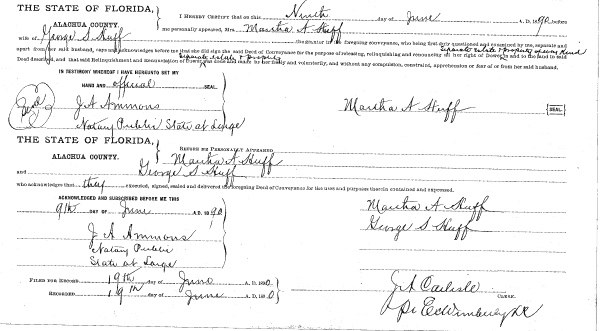 THE STATE OF FLORIDA,
ALACHUA COUNTY.
I HEREBY CERTIFY that on this Ninth day of June A. D. 1890, before
me personally appeared, Mrs. Martha A Huff
wife of George S Huff in the foregoing conveyance, who being first duly questioned and examined by me, separate and
apart from her said husband, says and acknowledges before me that she did sign the said Deed of Conveyance for the purpose of releasing, relinquishing and renouncing all her right of Dower Separate estate & Property of every kind in and to the land in said
Deed described, and that said Relinquishment and Renunciation of Dower Separate estate & Property was done and made by her freely and voluntarily, and without any compulsion, constraint, apprehension or fear of or from her said husband.
IN TESTIMONY WHEREOF I HAVE HEREUNTO SET MY
HAND AND official SEAL
Seal
J A Ammons
Notary Public State at Large
Martha A Huff SEAL
THE STATE OF FLORIDA,
ALACHUA COUNTY.
BEFORE ME PERSONALLY APPEARED
Martha A Huff
and George S Huff
who acknowledges that they executed, signed, sealed and delivered the foregoing Deed of Conveyance for the uses and purposes therein contained and expressed.
ACKNOWLEDGED AND SUBSCRIBED BEFORE ME THIS
9th DAY OF June A. D. 1890
J A Ammons
Notary Public
State at Large
Martha A Huff
George S Huff
FILED FOR RECORD 19th day of June A. D. 1890
RECORDED 19th day of June 1890
J A Carlisle
CLERK.